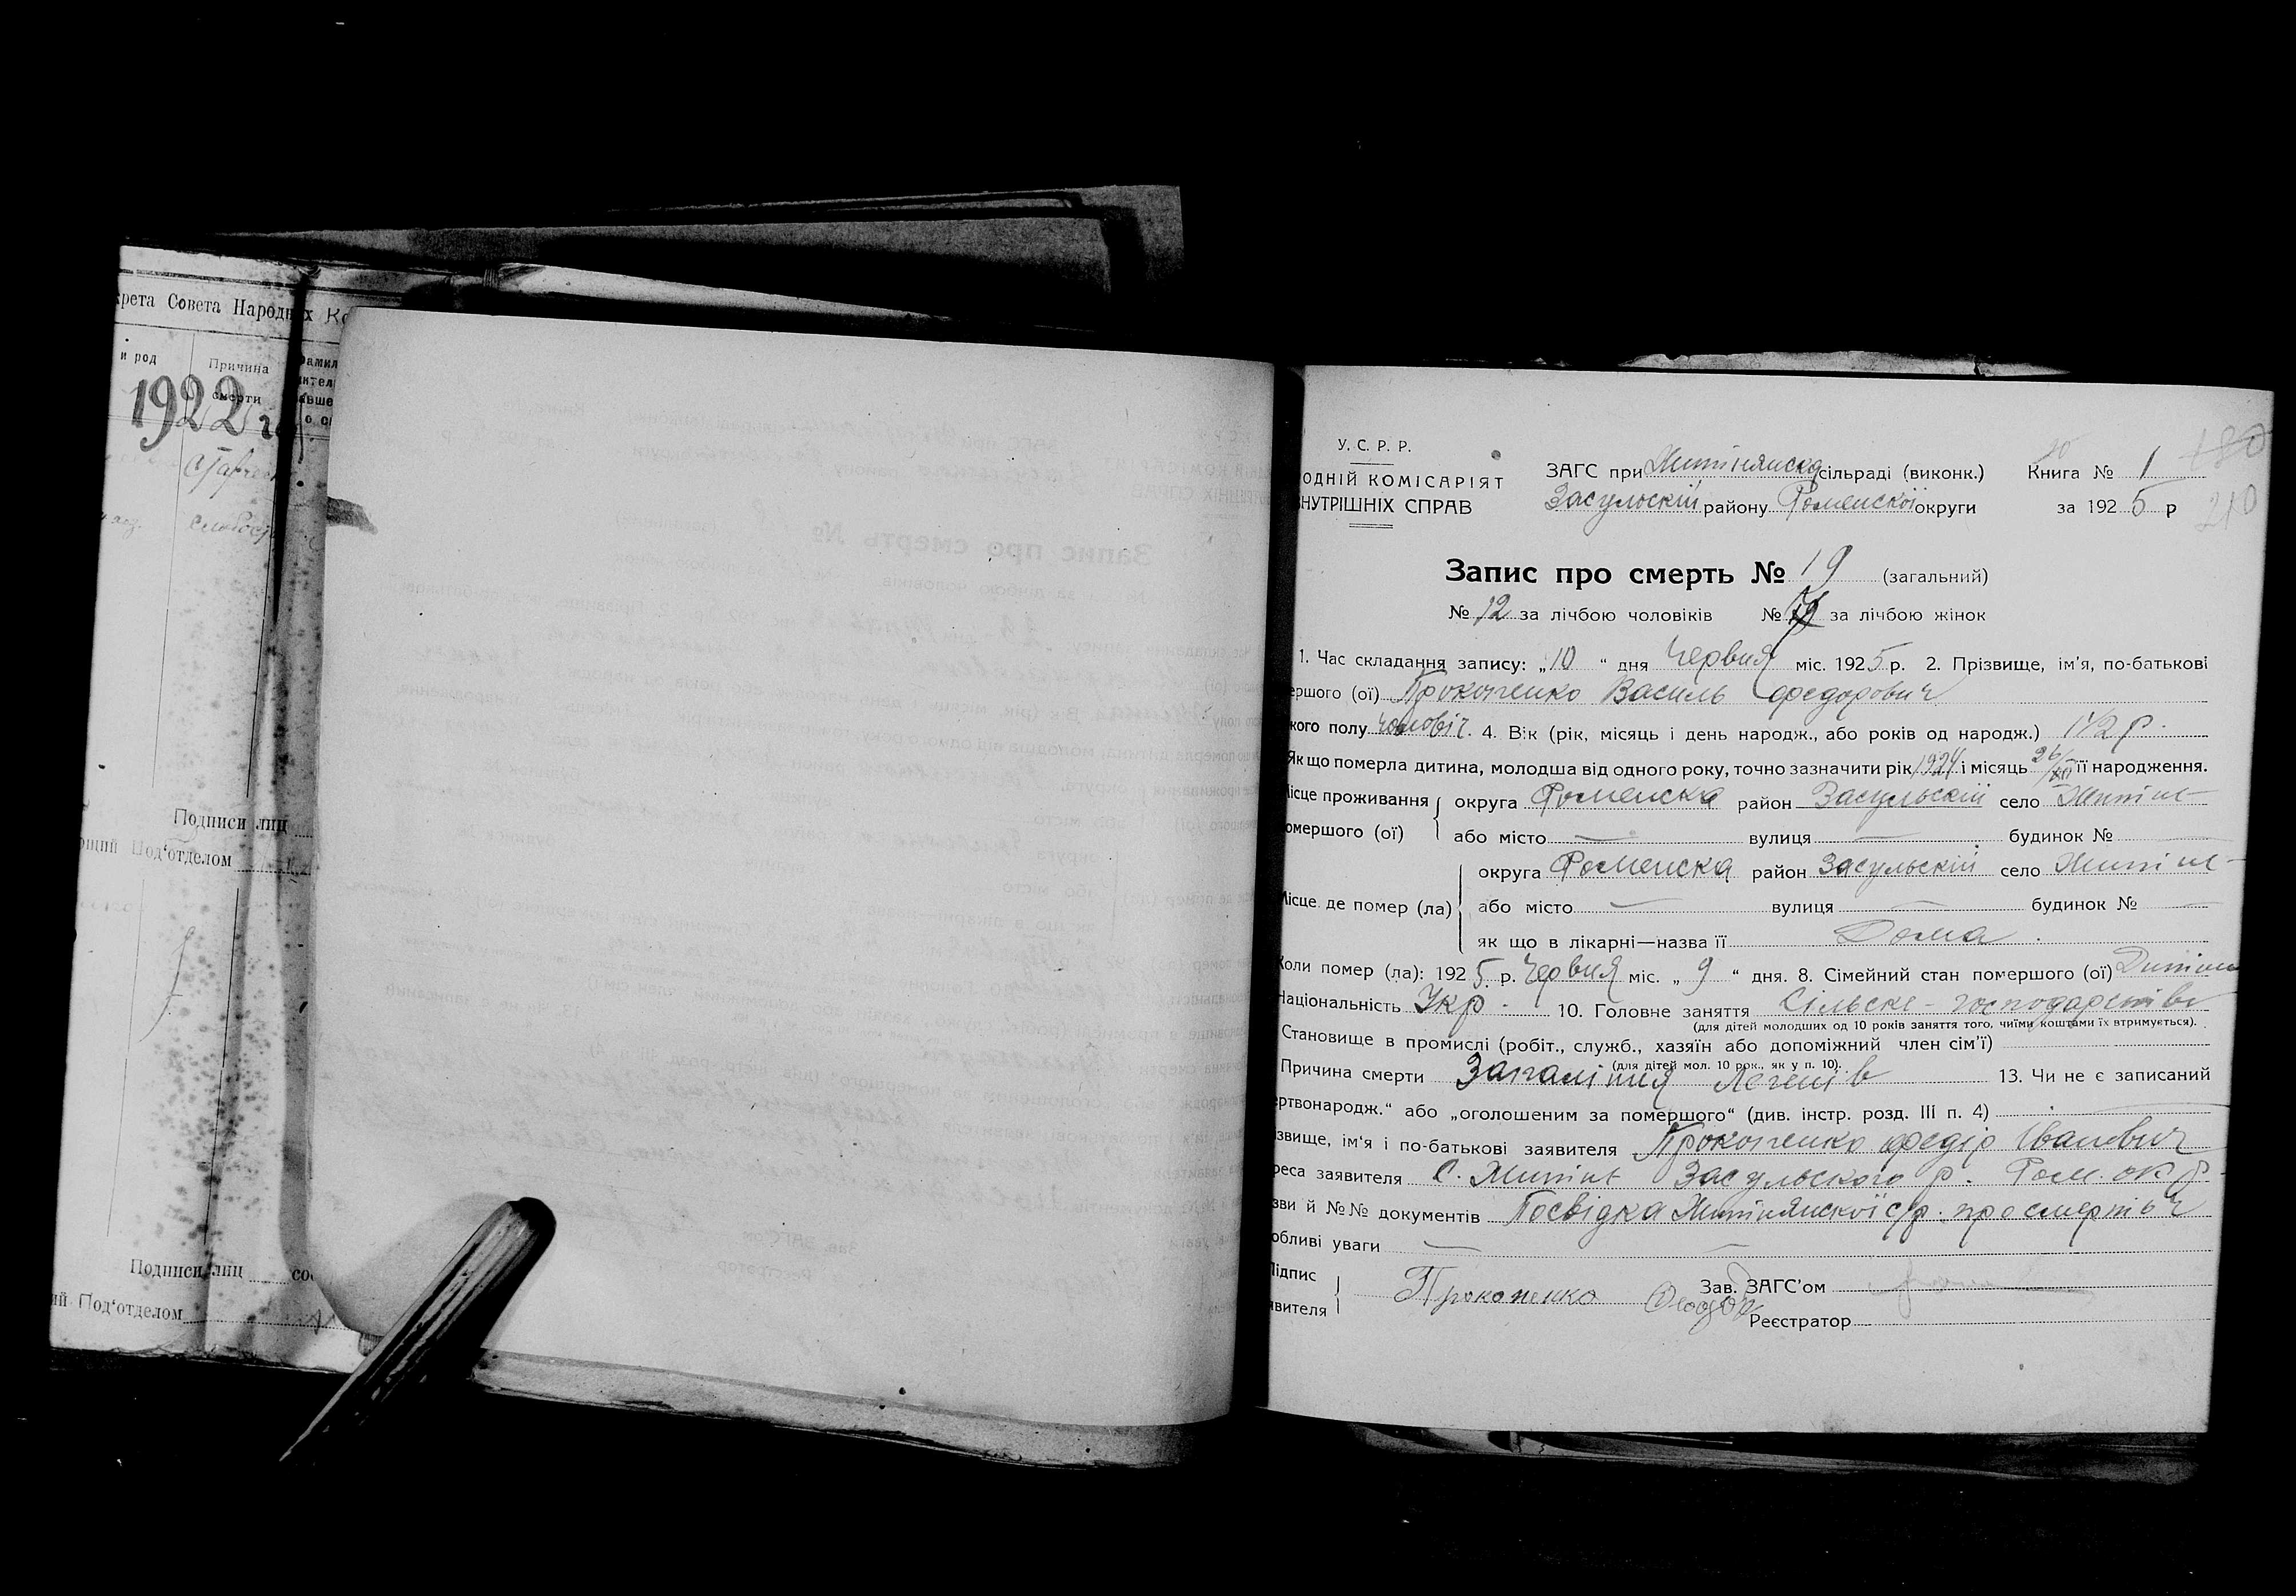 крета Совета Народных Ко
и род
Причина
смерти
1922 г
Подписи лиц
ющий Под'отделом
Подписи лиц
ий Под'отделом
У. С. Р. Р.
ОДНІЙ КОМІСАРІЯТ
ВНУТРІШНІХ СПРАВ
ЗАГС при сільраді (виконк.)
Засульскій району Роменскої округи
Книга № 1
за 1925 р
210
Запис про смерть № 19 (загальний)
№ 12 за лічбою чоловіків № за лічбою жінок
1. Час складання запису: „10“ дня Червня міс. 1925 р. 2. Прізвище, ім'я, по-батькові
ершого (ої) Прокопенко Василь Федорович
кого полу чоловіч. 4. Вік (рік, місяць і день народж., або років од народж.) 1/2 р.
Якщо померла дитина, молодша від одного року, точно зазначити рік 1924 і місяць 26/XII її народження.
Місце проживання округа Роменска район Засульскій село
омершого (ої) або місто — вулиця — будинок № —
округа Роменска район Засульскій село
Місце де помер (ла) або місто — вулиця — будинок № —
як що в лікарні—назва її Дома
Коли помер (ла): 1925 р. Червня міс. „9“ дня. 8. Сімейний стан помершого (ої)
Національність Укр. 10. Головне заняття Сільске-господарство
(для дітей молодших од 10 років заняття того, чиїми коштами їх втримується).
Становище в промислі (робіт., служб., хазяїн або допоміжний член сім'ї)
(для дітей мол. 10 рок., як у п. 10).
Причина смерти Запаління Легенів 13. Чи не є записаний
ертвонародж.“ або „оголошеним за помершого“ (див. інстр. розд. III п. 4) —
ізвище, ім'я і по-батькові заявителя Прокопенко Федір Іванович
реса заявителя С. Засульского р. Ром. окр
зви й №№ документів Посвідка с/р. про смерть
обливі уваги —
Підпис
явителя Прокопенко Феодор
Зав. ЗАГС'ом
Реєстратор